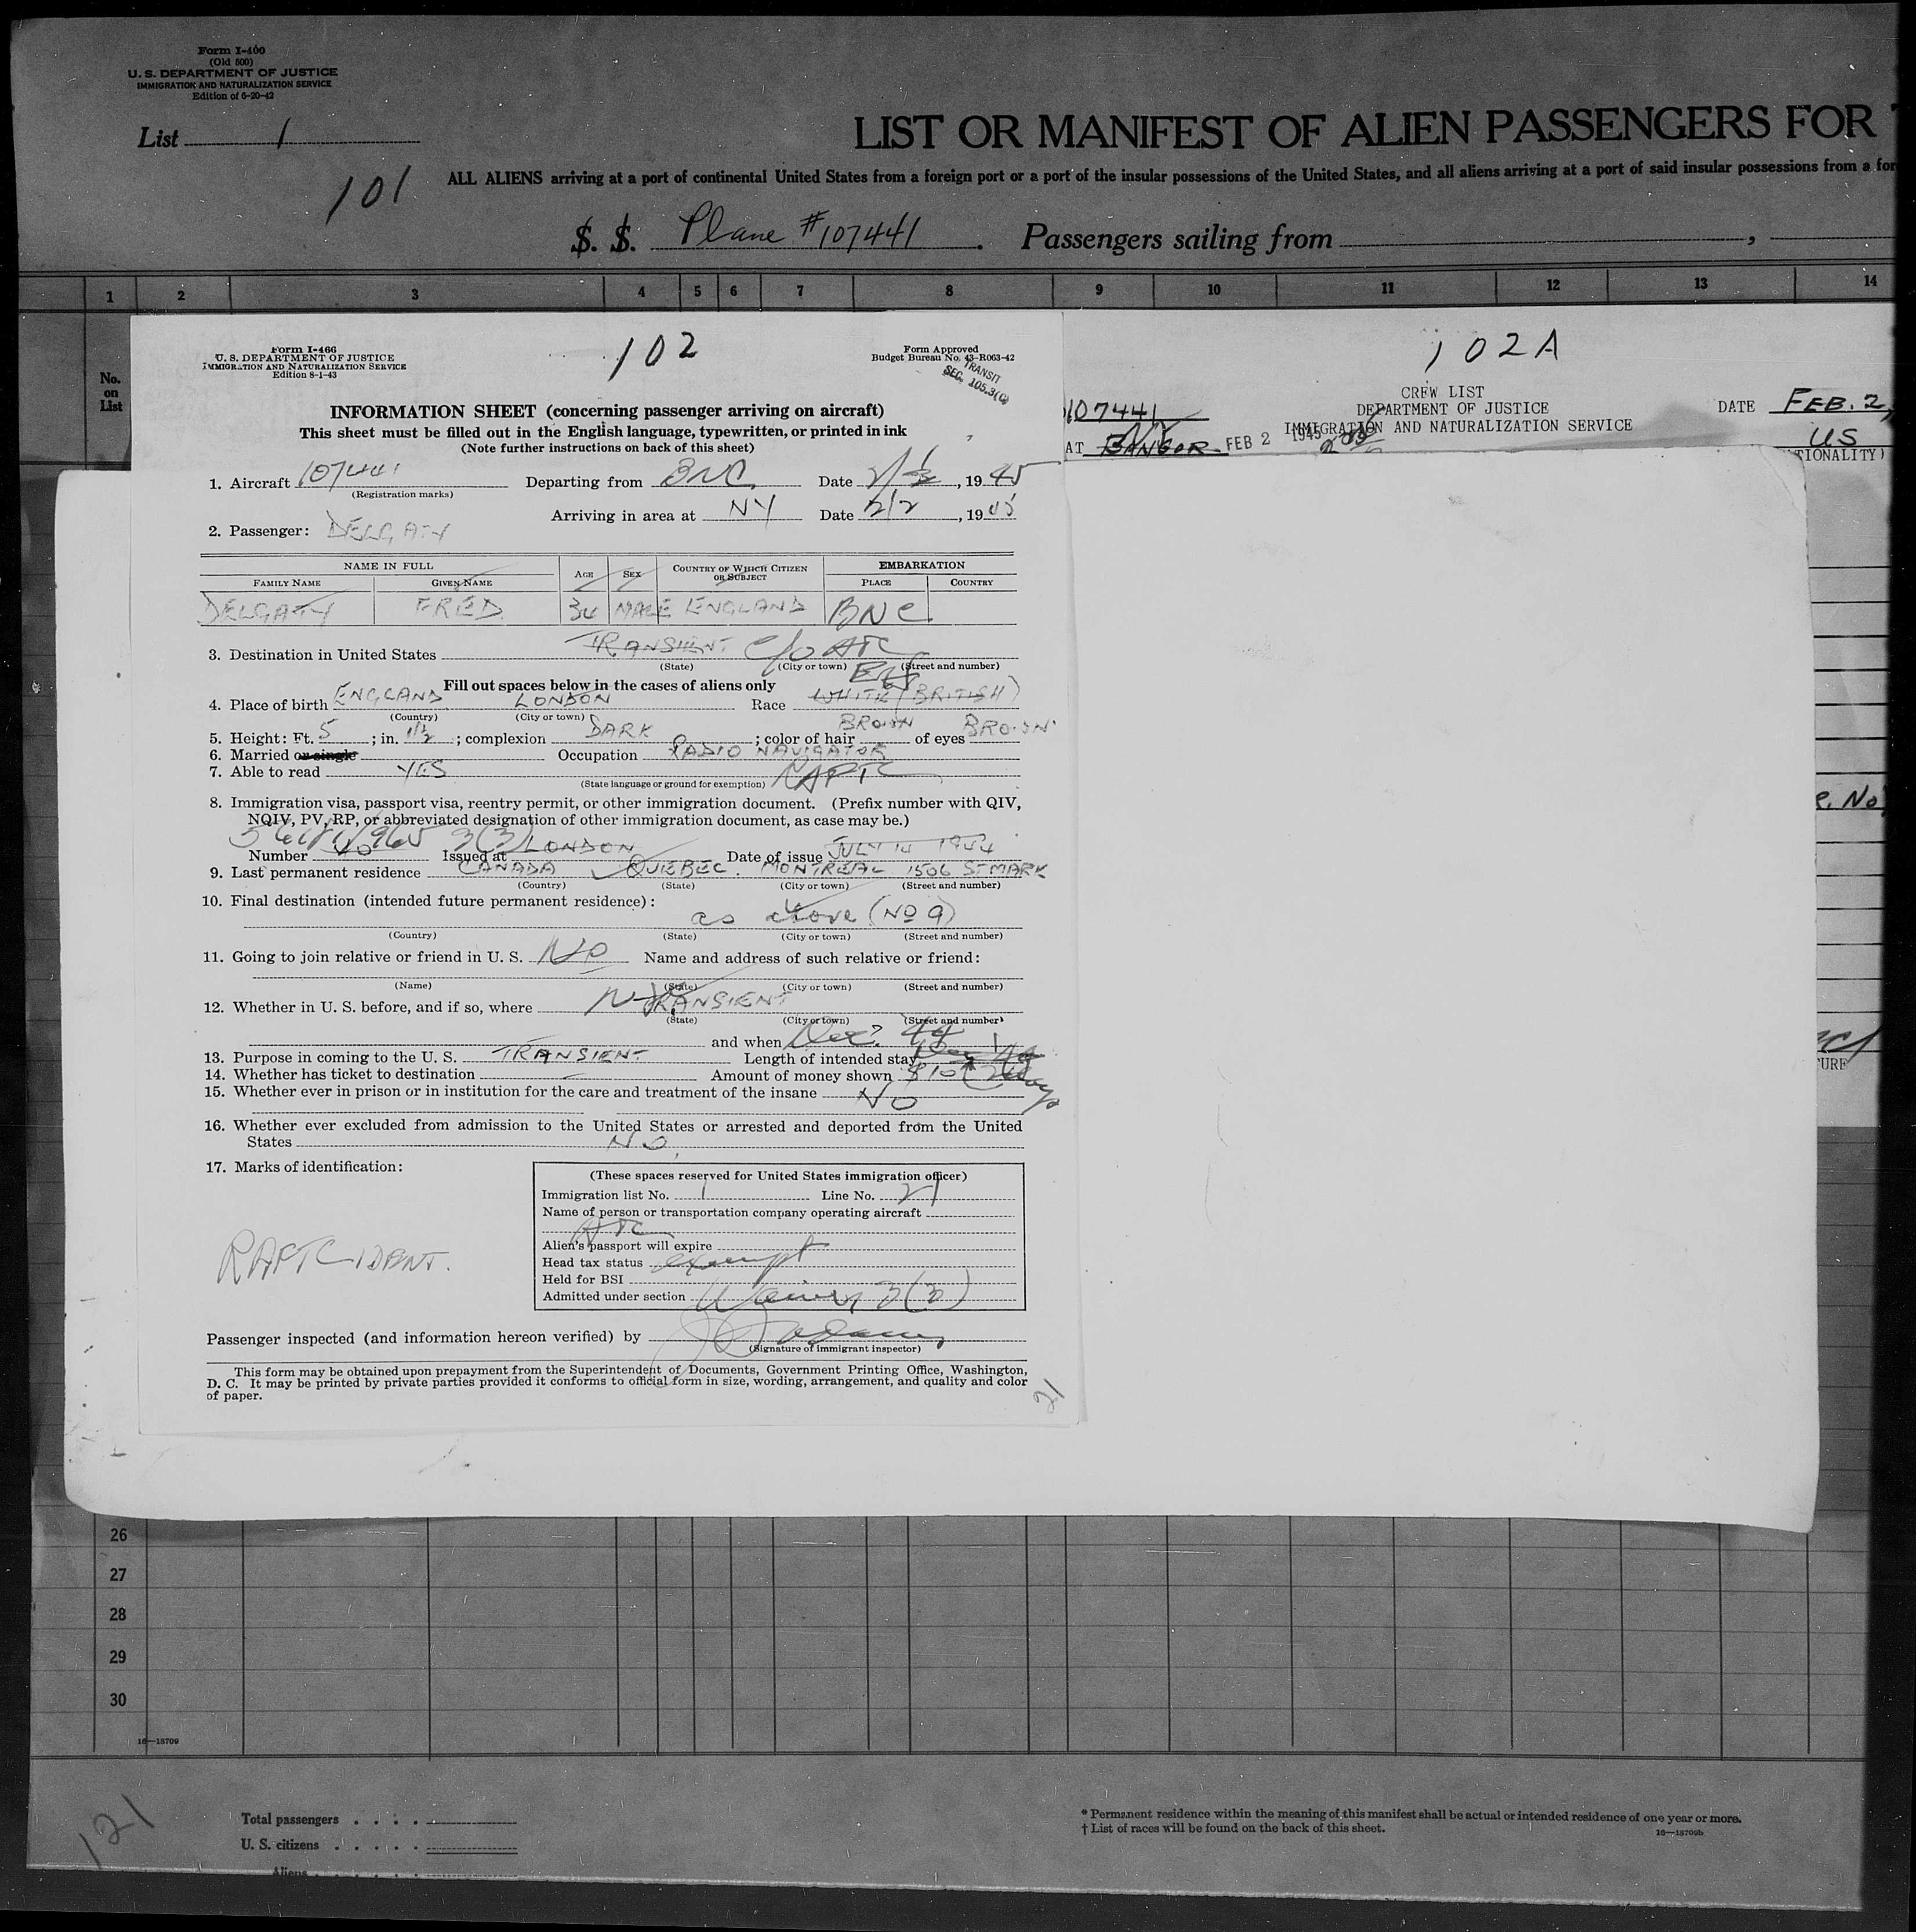 Form I-400
(Old 500)
U. S. DEPARTMENT OF JUSTICE
IMMIGRATION AND NATURALIZATION SERVICE
Edition of 6-20-42
List 1
LIST OR MANIFEST OF ALIEN PASSENGERS FOR
101
ALL ALIENS arriving at a port of continental United States from a foreign port or a port of the insular possessions of the United States, and all aliens arriving at a port of said insular possessions from a for
S. S. Plane #107441 . Passengers sailing from ,
1 2 3 4 5 6 7 8 9 10 11 12 13 14
No.
on
List
Form I-466
U. S. DEPARTMENT OF JUSTICE
IMMIGRATION AND NATURALIZATION SERVICE
Edition 8-1-43
102
Form Approved
Budget Bureau No. 43-R063-42
TRANSIT
SEC. 105.3(C)
INFORMATION SHEET (concerning passenger arriving on aircraft)
This sheet must be filled out in the English language, typewritten, or printed in ink
(Note further instructions on back of this sheet)
1. Aircraft 107441 Departing from BNC Date 2/ , 1945
(Registration marks)
Arriving in area at NY Date 2/2 , 1945
2. Passenger: DELGATY
NAME IN FULL AGE SEX COUNTRY OF WHICH CITIZEN OR SUBJECT EMBARKATION
FAMILY NAME GIVEN NAME PLACE COUNTRY
DELGATY FRED 34 MALE ENGLAND BNC
3. Destination in United States TRANSIENT c/o ATC
(State) (City or town) (Street and number)
Fill out spaces below in the cases of aliens only
4. Place of birth ENGLAND LONDON Race WHITE (BRITISH)
(Country) (City or town)
5. Height: Ft. 5 ; in. 1½ ; complexion DARK ; color of hair BROWN of eyes BROWN
6. Married or single Occupation RADIO NAVIGATOR
7. Able to read YES
(State language or ground for exemption) RAFTC
8. Immigration visa, passport visa, reentry permit, or other immigration document. (Prefix number with QIV,
NQIV, PV, RP, or abbreviated designation of other immigration document, as case may be.)
3(3) LONDON
Number Issued at Date of issue JULY 14 1944
9. Last permanent residence CANADA QUEBEC. MONTREAL 1506 ST MARK
(Country) (State) (City or town) (Street and number)
10. Final destination (intended future permanent residence):
as above (No 9)
(Country) (State) (City or town) (Street and number)
11. Going to join relative or friend in U. S. No Name and address of such relative or friend:
(Name) (State) (City or town) (Street and number)
12. Whether in U. S. before, and if so, where TRANSIENT
(State) (City or town) (Street and number)
and when Dec. 44
13. Purpose in coming to the U. S. TRANSIENT Length of intended stay
14. Whether has ticket to destination — Amount of money shown $10
15. Whether ever in prison or in institution for the care and treatment of the insane No
16. Whether ever excluded from admission to the United States or arrested and deported from the United
States NO
17. Marks of identification:
RAFTC IDENT.
(These spaces reserved for United States immigration officer)
Immigration list No. 1 Line No. 21
Name of person or transportation company operating aircraft
ATC
Alien's passport will expire
Head tax status exempt
Held for BSI
Admitted under section Waiver 3(3)
Passenger inspected (and information hereon verified) by
(Signature of immigrant inspector)
This form may be obtained upon prepayment from the Superintendent of Documents, Government Printing Office, Washington,
D. C. It may be printed by private parties provided it conforms to official form in size, wording, arrangement, and quality and color
of paper.
21
102A
CREW LIST
DEPARTMENT OF JUSTICE
IMMIGRATION AND NATURALIZATION SERVICE
DATE FEB. 2,
107441
AT BANGOR FEB 2 1945
US
TIONALITY)
R. No
URE
26
27
28
29
30
16—18709
121
Total passengers . . . .
U. S. citizens . . . . .
Aliens
* Permanent residence within the meaning of this manifest shall be actual or intended residence of one year or more.
† List of races will be found on the back of this sheet.
16—18709b